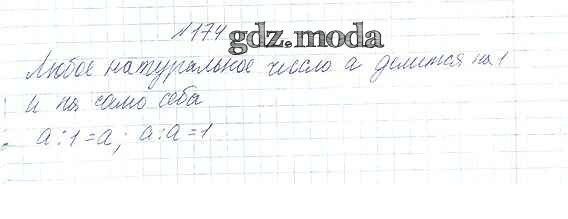 №174
gdz.moda
Любое натуральное число a делится на 1
и на само себя
a : 1 = a; a : a = 1